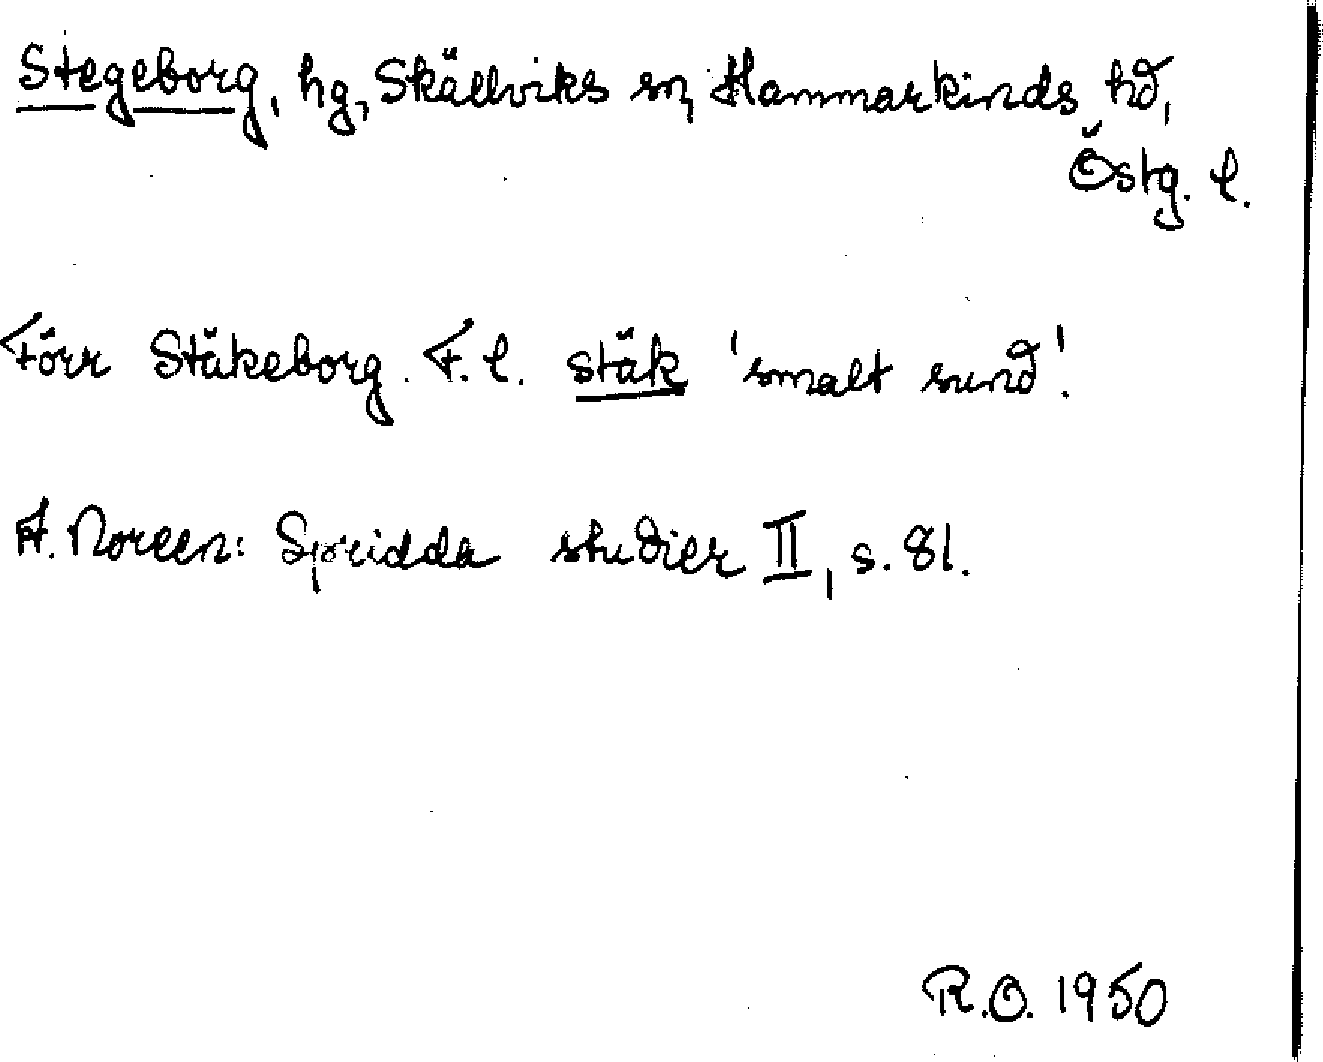 Stegeborg, hg, Skällviks sn, Hammarkinds hd,
Östg. l.
Förr Stäkeborg. F. l. stäk 'smalt sund'.
A. Noreen: Spridda studier II, s. 81.
R.O. 1950